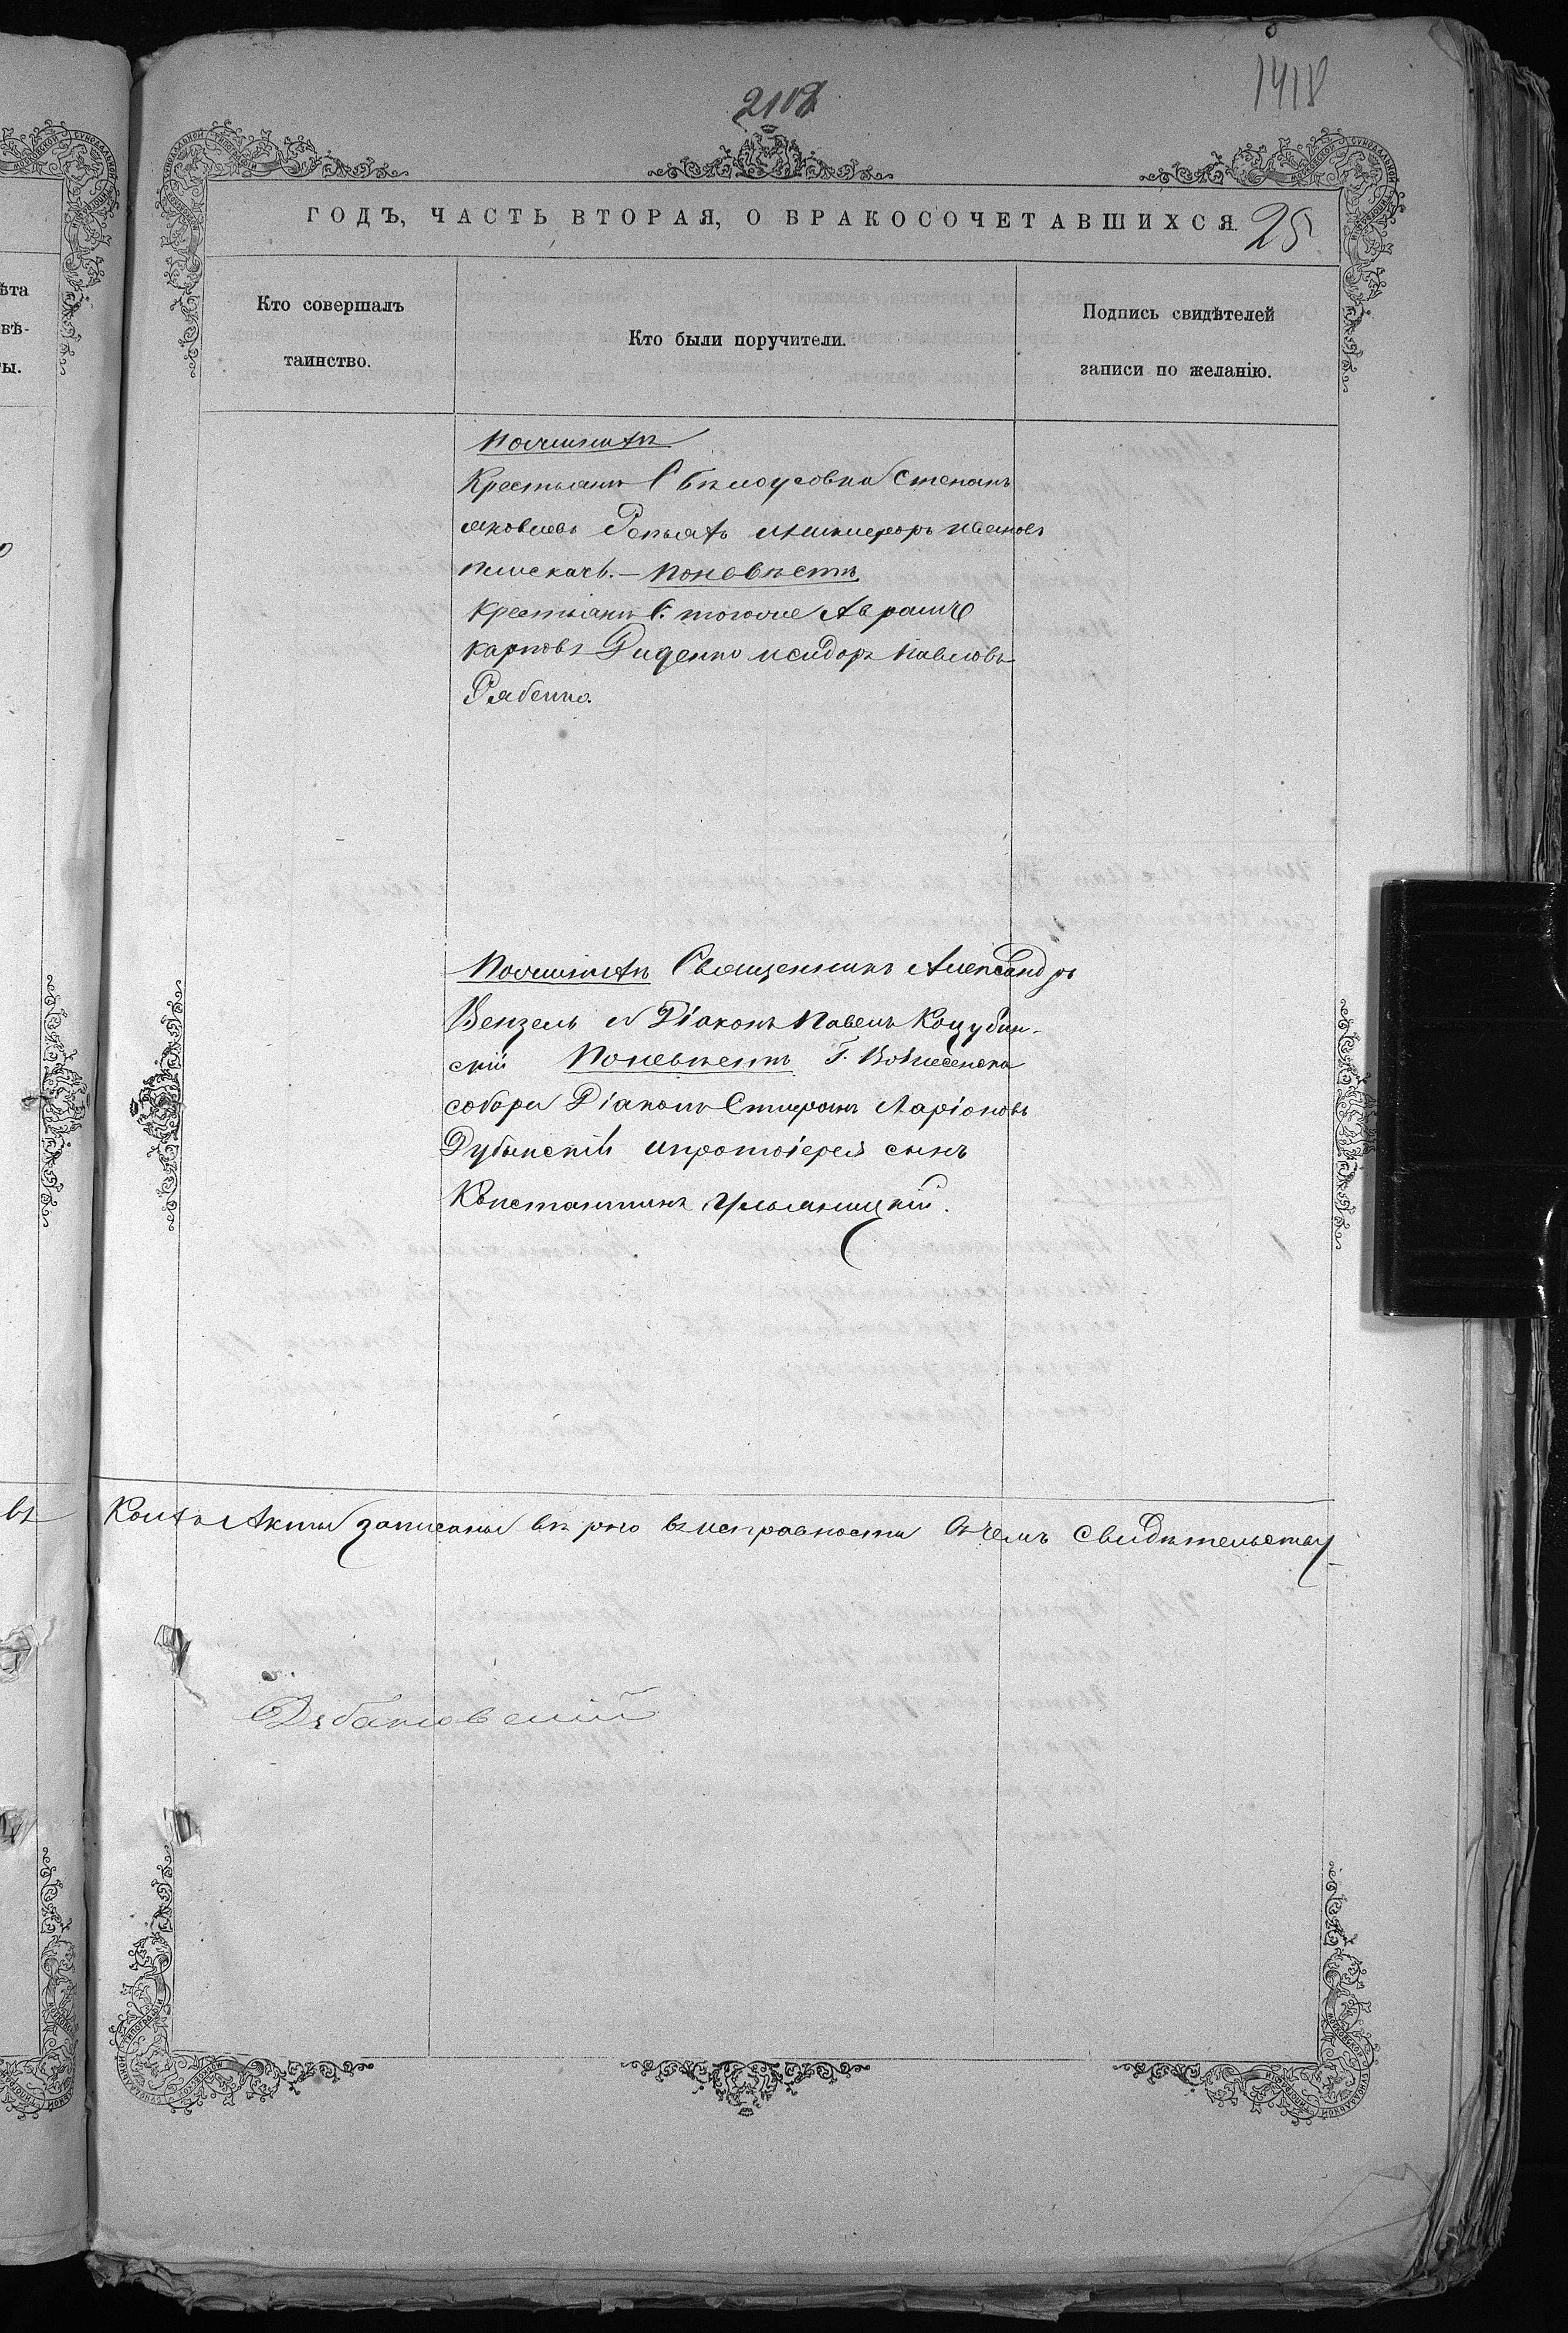 2108
1418
ГОДЪ, ЧАСТЬ ВТОРАЯ, О БРАКОСОЧЕТАВШИХСЯ. 25
Кто совершалъ
таинство.
Кто были поручители.
Подпись свидѣтелей
записи по желанію.
ѣта
вѣ-
ты.
Крестьяне С Бѣлоусовки Степанъ
Яковлевъ Репьятъ Иванов
Поневѣстѣ
Крестьяне С. тогоже Аврамъ
Карповъ Диденко Исидоръ Павловъ
Рябенко.
Священникъ Александръ
Вензель и Діаконъ Павелъ Коцубин-
скій Поневѣстѣ Г. Вознесенска
собора Діаконъ Ларіоновъ
Дубинскій ипротоіерея сынъ
Константинъ Ульяницкій.
Акты записаны вѣрно висправности Вчемъ свидѣтельству